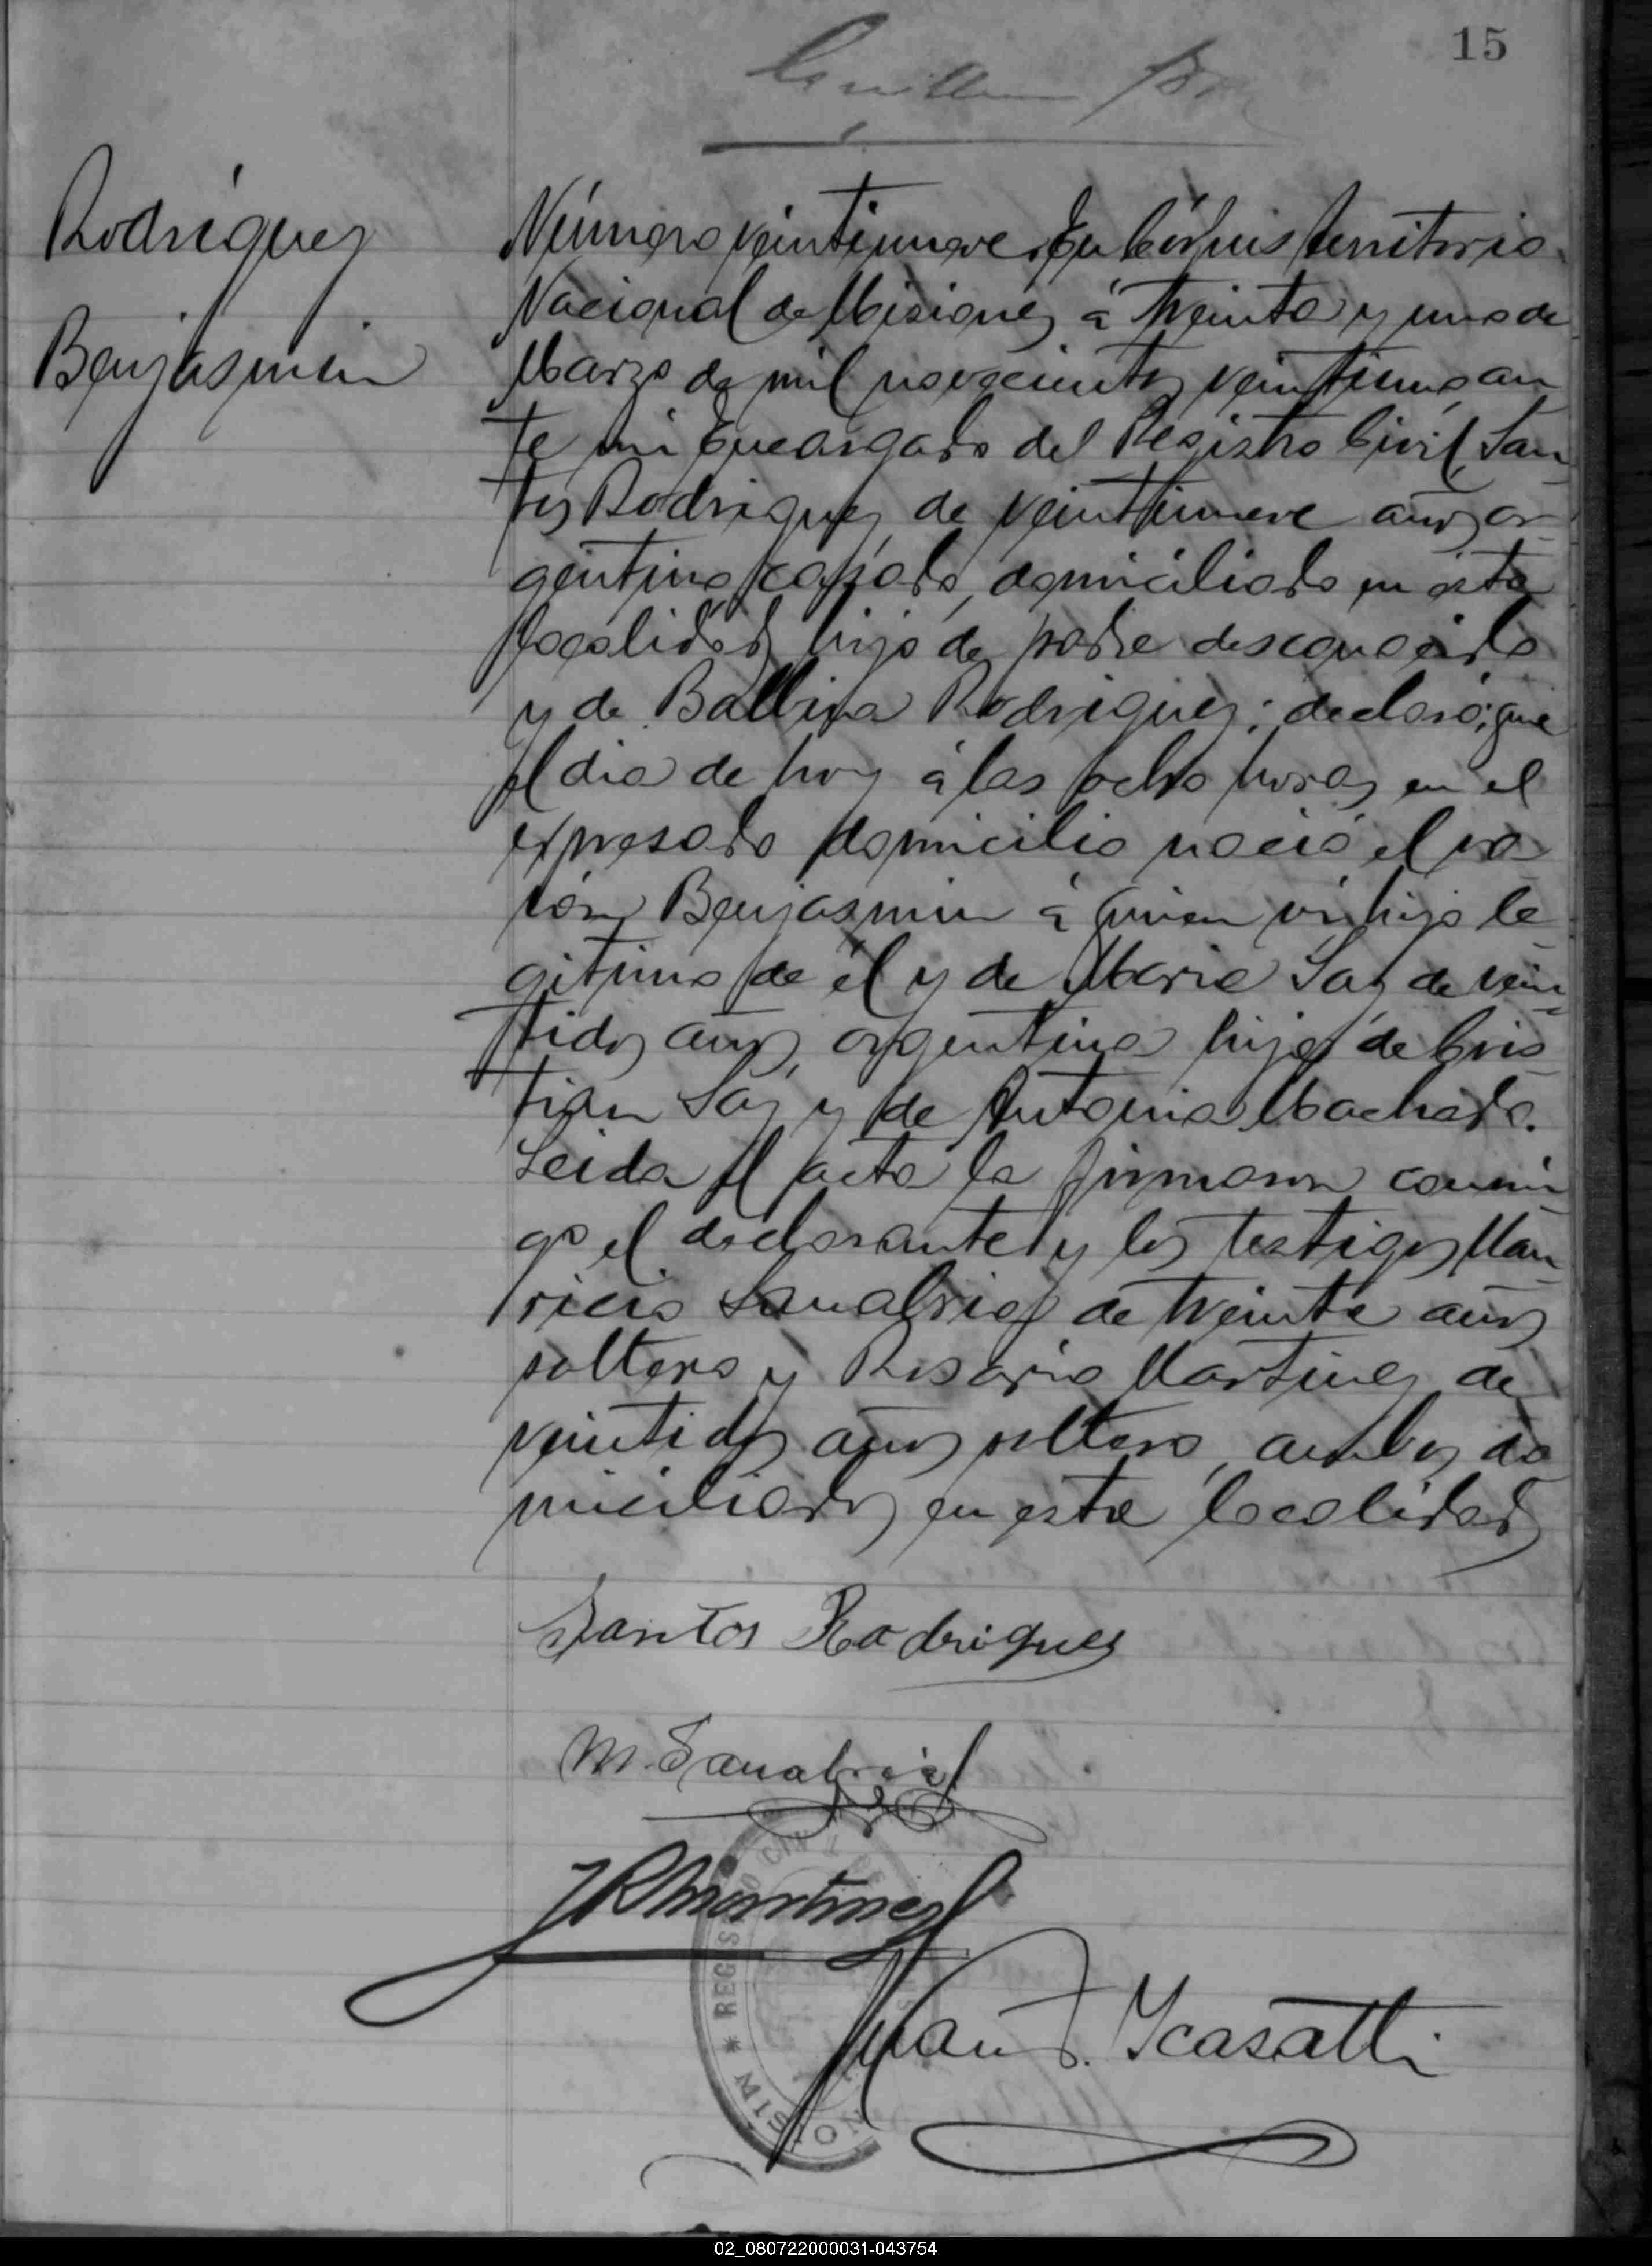 15
Rodríguez
Benjasmin
Número veintinueve. En Córpus territorio
Nacional de Misiones á treinta y uno de
Marzo de mil novecientos veintiuno, an
te mi Encargado del Registro Civil, San-
tos Rodriguez de veintinueve años ar-
gentino, casado, domiciliado en esta
localidad, hijo de padre desconocido
y de Balbina Rodriguez; declaró: que
el dia de hoy á las ocho horas en el
expresado domicilio nació el va-
rón Benjasmin á quien vi, hijo le-
gitimo de él y de Maria Say de vein-
tidos años, argentina hija de Cris-
tian Say y de Antonia Machado.
Leida el acta la firmaron conmi
go el declarante y los testigos Mau-
ricio Sanabria de treinta años
soltero y Rosario Martinez de
veintidos años soltero, ambos do
miciliados en esta localidad
Santos Rodrigues
M. Sanabria
JRMartinez
Juan F. Ycasatti
* REGISTRO CIVIL DE
MISIONES
02_080722000031-043754